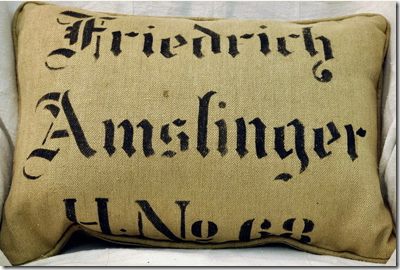 Friedrich
Amslinger
H. No 68